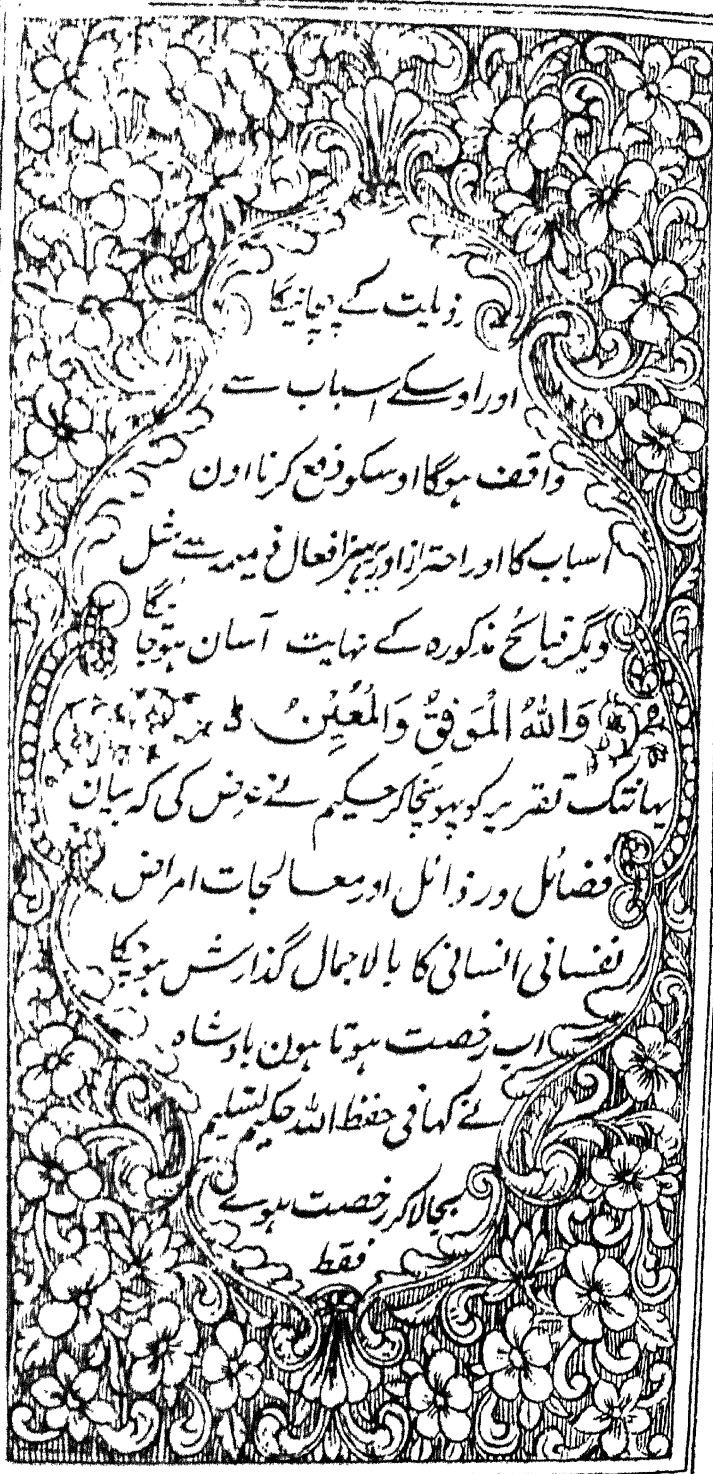 رذیلت کے پہچانیگا
اور اوسکے اسباب سے
واقف ہوگا اوسکو دفع کرنا اون
اسباب کا اور احتراز اور پرہیز افعال ذمیمہ سے مثل
دیگر قبائح مذکورہ کے نہایت آسان ہوجائیگا
وَاللّٰهُ الْمُوَفِّقُ وَالْمُعِیْنُ
یہانتک تقریر کو پہونچا کر حکیم نے عرض کی کہ بیان
فضائل و رذائل اور معالجات امراض
نفسانی انسانی کا بالاجمال گذارش ہوچکا
اب رخصت ہوتا ہون بادشاہ
نے کہا فی حفظ اللہ حکیم تسلیم
بجالاکر رخصت ہوے
فقط